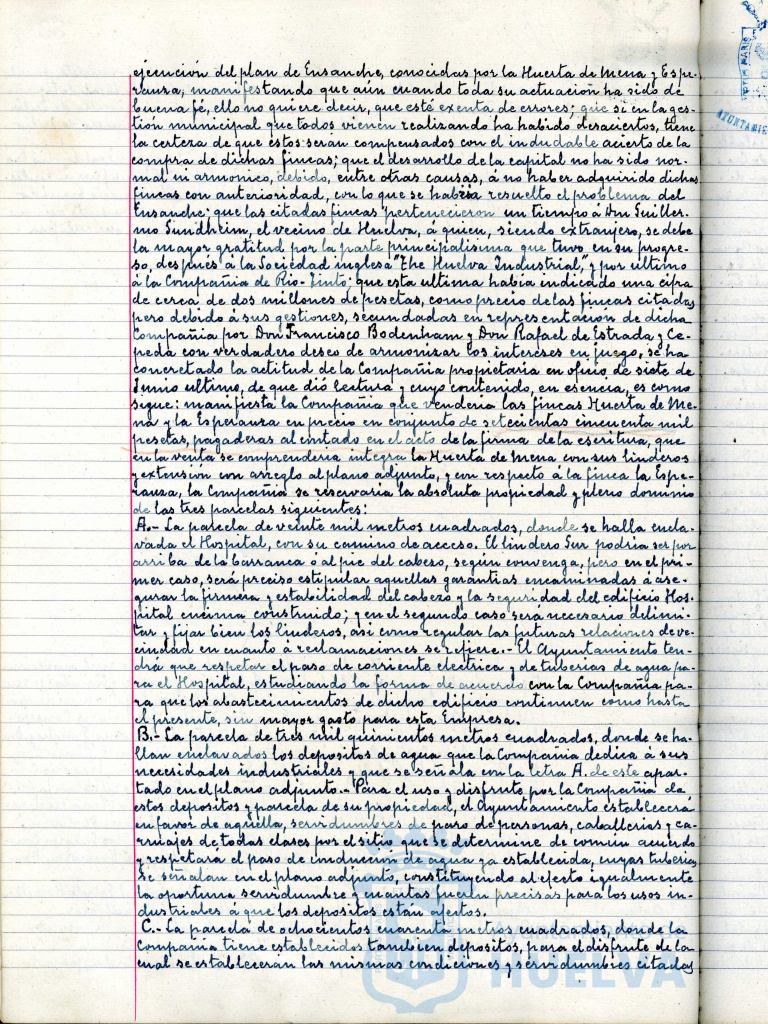 ejecución del plan de Ensanche, conocidas por la Huerta de Mena y Espe-
ranza, manifestando que aún cuando toda su actuación ha sido de
buena fé, ello no quiere decir, que esté exenta de errores; que si en la ges-
tión municipal que todos vienen realizando ha habido desaciertos, tiene
la certeza de que éstos serán compensados con el indudable acierto de la
compra de dichas fincas; que el desarrollo de la capital no ha sido nor-
mal ni armonico, debido, entre otras causas, á no haber adquirido dichas
fincas con anterioridad, con lo que se habría resuelto el problema del
Ensanche; que las citadas fincas pertenecieron un tiempo á Don Guiller-
mo Sundheim, el vecino de Huelva, á quien, siendo extranjero, se debe
la mayor gratitud por la parte principalisima que tuvo en su progre-
so, después á la Sociedad inglesa "The Huelva Industrial," y por ultimo
á la Compañia de Rio-Tinto; que esta ultima habia indicado una cifra
de cerca de dos millones de pesetas, como precio de las fincas citadas
pero debido á sus gestiones, secundadas en representación de dicha
Compañia por Don Francisco Bodenham y Don Rafael de Estrada y Ce-
peda con verdadero deseo de armonizar los intereses en juego, se ha
concretado la actitud de la Compañia propietaria en oficio de siete de
Junio ultimo, de que dió lectura y cuyo contenido, en esencia, es como
sigue: manifiesta la Compañia que vendería las fincas Huerta de Me-
na y la Esperanza en precio en conjunto de setecientas cincuenta mil
pesetas, pagaderas al contado en el acto de la firma de la escritura, que
en la venta se comprendería integra la Huerta de Mena con sus linderos
y extensión con arreglo al plano adjunto, y en respecto á la finca la Espe-
ranza, la Compañia se reservaría la absoluta propiedad y pleno dominio
de las tres parcelas siguientes:
A.- La parcela de veinte mil metros cuadrados, donde se halla encla-
vada el Hospital, con su camino de acceso. El lindero Sur podría ser por
arriba de la barranca ó al pie del cabezo, según convenga, pero en el pri-
mer caso, será preciso estipular aquellas garantias encaminadas á ase-
gurar la firmeza y estabilidad del cabezo y la seguridad del edificio Hos-
pital encima construido; y en el segundo caso será necesario delimi-
tar y fijar bien los linderos, asi como regular las futuras relaciones de ve-
cindad en cuanto á reclamaciones se refiere.- El Ayuntamiento ten-
drá que respetar el paso de corriente electrica y de tuberias de agua pa-
ra el Hospital, estudiando la forma de acuerdo con la Compañia pa-
ra que los abastecimientos de dicho edificio continuen como hasta
el presente, sin mayor gasto para esta Empresa.
B.- La parcela de tres mil quinientos metros cuadrados, donde se ha-
llan enclavados los depositos de agua que la Compañia dedica á sus
necesidades industriales y que se señala con la letra A. de este apar-
tado en el plano adjunto.- Para el uso y disfrute por la Compañia de
estos depositos y parcela de su propiedad, el Ayuntamiento establecerá
en favor de aquella, servidumbres de paso de personas, caballerias y ca-
rruajes de todas clases por el sitio que se determine de común acuerdo
y respetará el paso de conducción de agua ya establecida, cuyas tuberias
se señalan en el plano adjunto, constituyendo al efecto igualmente
la oportuna servidumbre y cuantas fueren precisas para los usos in-
dustriales á que los depositos están afectos.
C.- La parcela de ochocientos cuarenta metros cuadrados, donde la
Compañia tiene establecidos tambien depositos, para el disfrute de la
cual se establecerán las mismas condiciones y servidumbres citadas
HUELVA